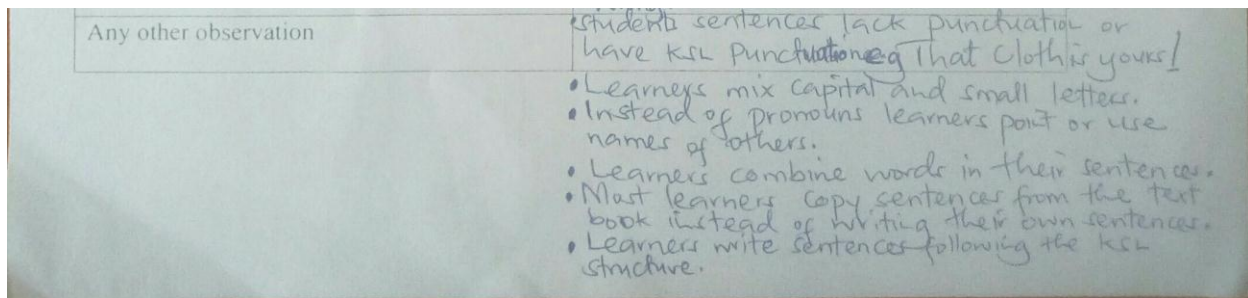 Any other observation
students sentences lack punctuation or
have KSL Punctuation eg That Cloth is yours!
• Learners mix capital and small letters.
• Instead of pronouns learners point or use
names of others.
• Learners combine words in their sentences.
• Most learners copy sentences from the text
book instead of writing their own sentences.
• Learners write sentences following the KSL
structure.